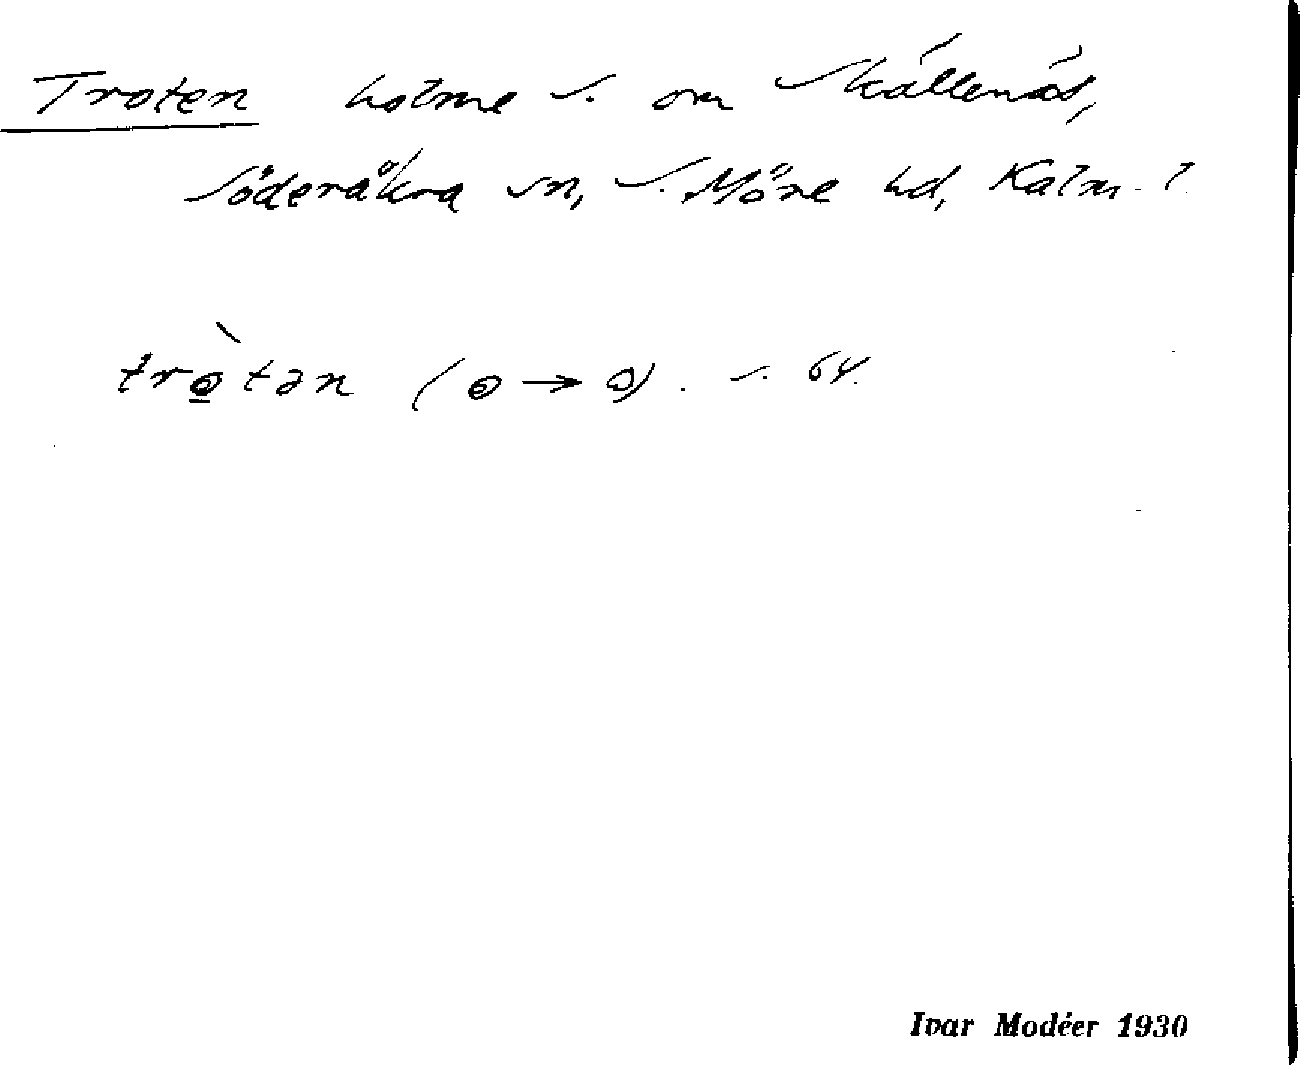 Troten holme S. om Skällenäs,
Söderåkra sn, S. Möre hd, Kalm. l.
trò̲tən (o → ɔ). s. 64.
Ivar Modéer 1930